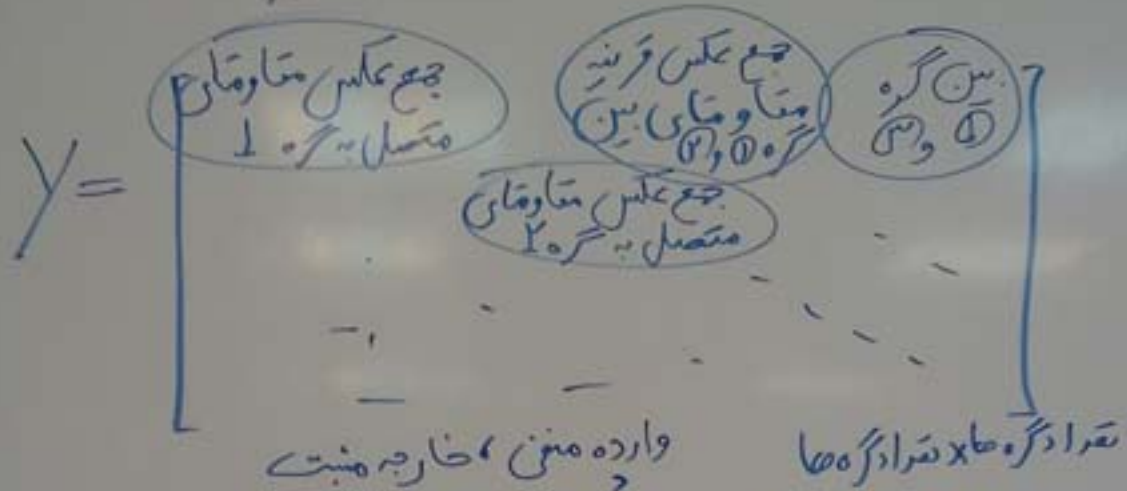 Y=
جمع عکس مقاومتهای
متصل به گره 1
جمع عکس قرینه
مقاومتهای بین
گره ① و ②
بین گره
① و ③
جمع عکس مقاومتهای
متصل به گره ۲
وارده منفی، خارجه مثبت
تعداد گره ها × تعداد گره ها